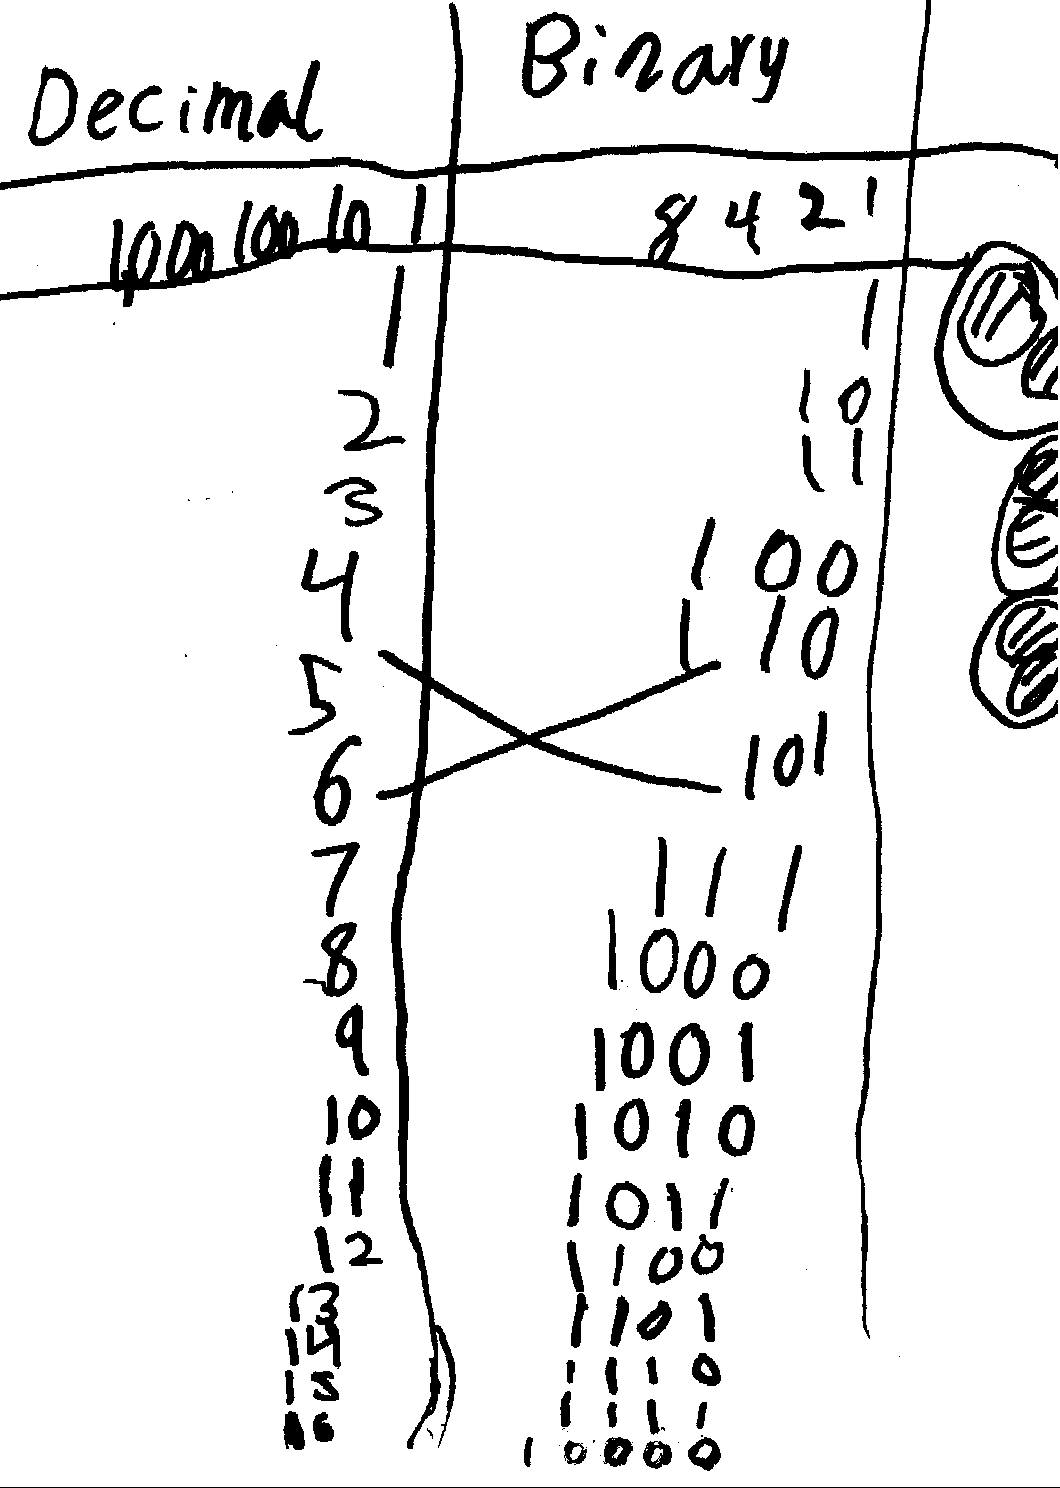 Decimal Binary
1000 100 10 1 8 4 2 1
1 1
2 10
3 11
4 100
5 110
6 101
7 111
8 1000
9 1001
10 1010
11 1011
12 1100
13 1101
14 1110
15 1111
16 10000